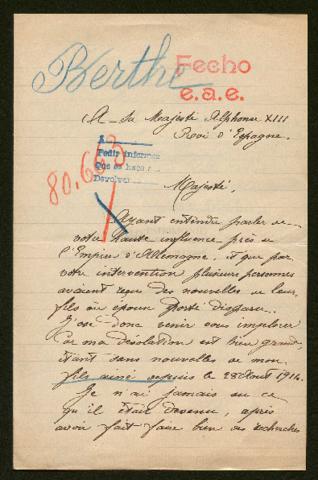 Berthe
Fecho
e.a.e.
A Sa Majesté Alphonse XIII
Roi d'Espagne.
A
Pedir informes
Que se haga
Devolver
80.603
Majesté,
Ayant entendu parler de
votre haute influence près de
l'Empire d'Allemagne, et que par
votre intervention plusieurs personnes
avaient reçu des nouvelles de leur
fils ou époux porté disparu.
J'ose donc venir vous implorer
car ma désolation est bien grande,
étant sans nouvelles de mon
fils ainé depuis le 28 Aout 1914.
Je n'ai jamais su ce
qu'il était devenu, après
avoir fait faire bien des recherches